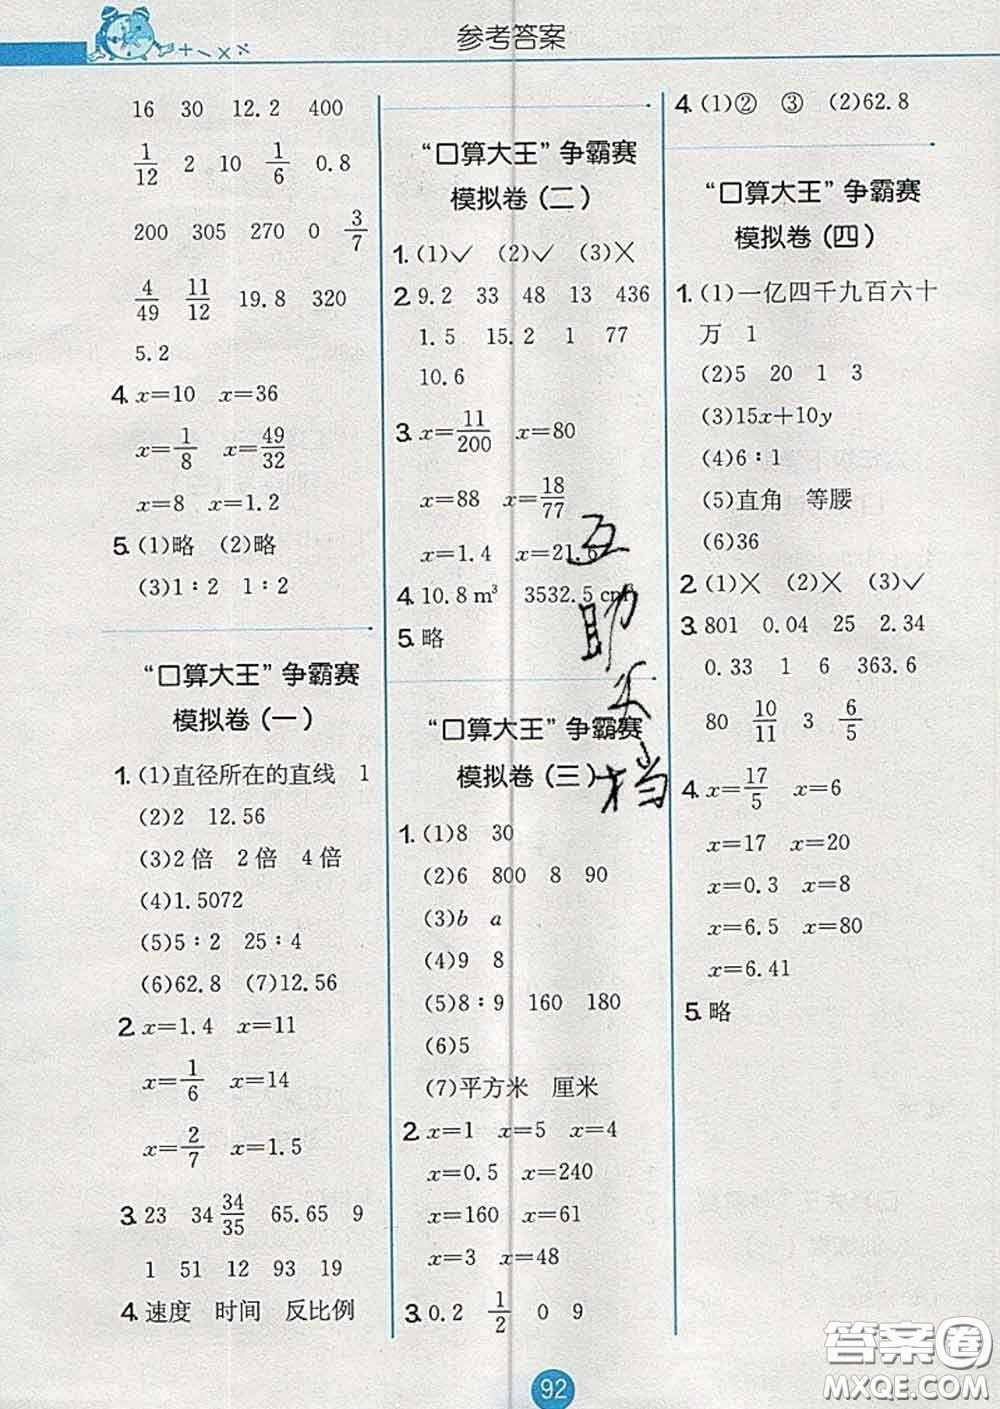 参考答案
16 30 12.2 400
1/12 2 10 1/6 0.8
200 305 270 0 3/7
4/49 11/12 19.8 320
5.2
4. x=10 x=36
x=1/8 x=49/32
x=8 x=1.2
5. (1)略 (2)略
(3)1∶2 1∶2
“口算大王”争霸赛
模拟卷(一)
1. (1)直径所在的直线 1
(2)2 12.56
(3)2倍 2倍 4倍
(4)1.5072
(5)5∶2 25∶4
(6)62.8 (7)12.56
2. x=1.4 x=11
x=1/6 x=14
x=2/7 x=1.5
3. 23 34 34/35 65.65 9
1 51 12 93 19
4. 速度 时间 反比例
“口算大王”争霸赛
模拟卷(二)
1. (1)✓ (2)✓ (3)✗
2. 9.2 33 48 13 436
1.5 15.2 1 77
10.6
3. x=11/200 x=80
x=88 x=18/77
x=1.4 x=21.6
4. 10.8 m³ 3532.5 cm³
5. 略
“口算大王”争霸赛
模拟卷(三)
1. (1)8 30
(2)6 800 8 90
(3)b a
(4)9 8
(5)8∶9 160 180
(6)5
(7)平方米 厘米
2. x=1 x=5 x=4
x=0.5 x=240
x=160 x=61
x=3 x=48
3. 0.2 1/2 0 9
4. (1)② ③ (2)62.8
“口算大王”争霸赛
模拟卷(四)
1. (1)一亿四千九百六十
万 1
(2)5 20 1 3
(3)15x+10y
(4)6∶1
(5)直角 等腰
(6)36
2. (1)✗ (2)✗ (3)✓
3. 801 0.04 25 2.34
0.33 1 6 363.6
80 10/11 3 6/5
4. x=17/5 x=6
x=17 x=20
x=0.3 x=8
x=6.5 x=80
x=6.41
5. 略
92
答案圈
MXQE.COM